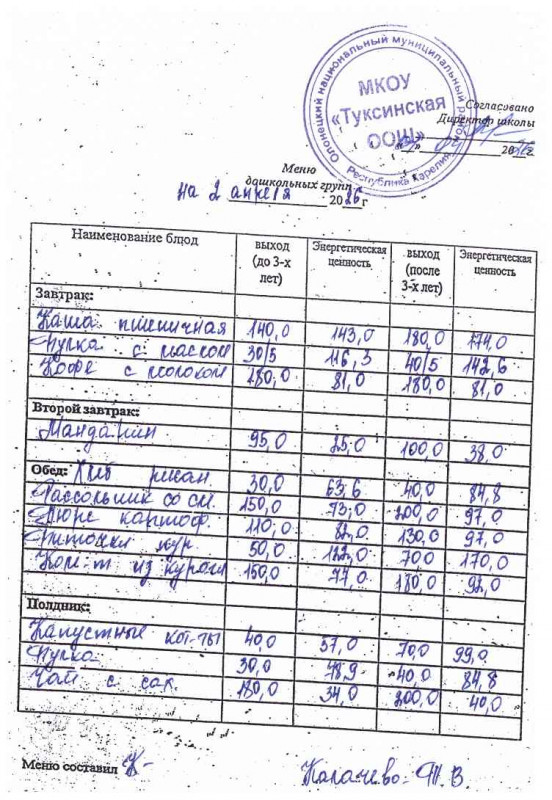 Олонецкий национальный муниципальный район
МКОУ
«Туксинская
ООШ»
Республика Карелия
Согласовано
Директор школы
20 г
Меню
дошкольных групп
на 2 апреля 2026 г
Наименование блюд выход (до 3-х лет) Энергетическая ценность выход (после 3-х лет) Энергетическая ценность
Завтрак:
Каша пшеничная 140,0 143,0 180,0 174,0
Булка с маслом 30/5 116,3 40/5 142,6
Кофе с молоком 180,0 81,0 180,0 81,0
Второй завтрак:
Мандарин 95,0 35,0 100,0 38,0
Обед: Хлеб ржан. 30,0 63,6 40,0 84,8
Рассольник со см. 150,0 73,0 200,0 97,0
Пюре картоф. 110,0 82,0 130,0 97,0
Биточки кур. 50,0 122,0 70,0 170,0
Ком-т из кураги 150,0 77,0 180,0 92,0
Полдник:
Капустные кот-ты 40,0 57,0 70,0 99,0
Булка 30,0 48,9 40,0 84,8
Чай с сах. 180,0 34,0 200,0 40,0
Меню составил